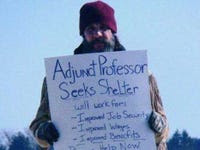 Adjunct Professor
Seeks Shelter
will work for:
- Improved Job Security
- Improved Wages
- Improved Benefits
Help Now